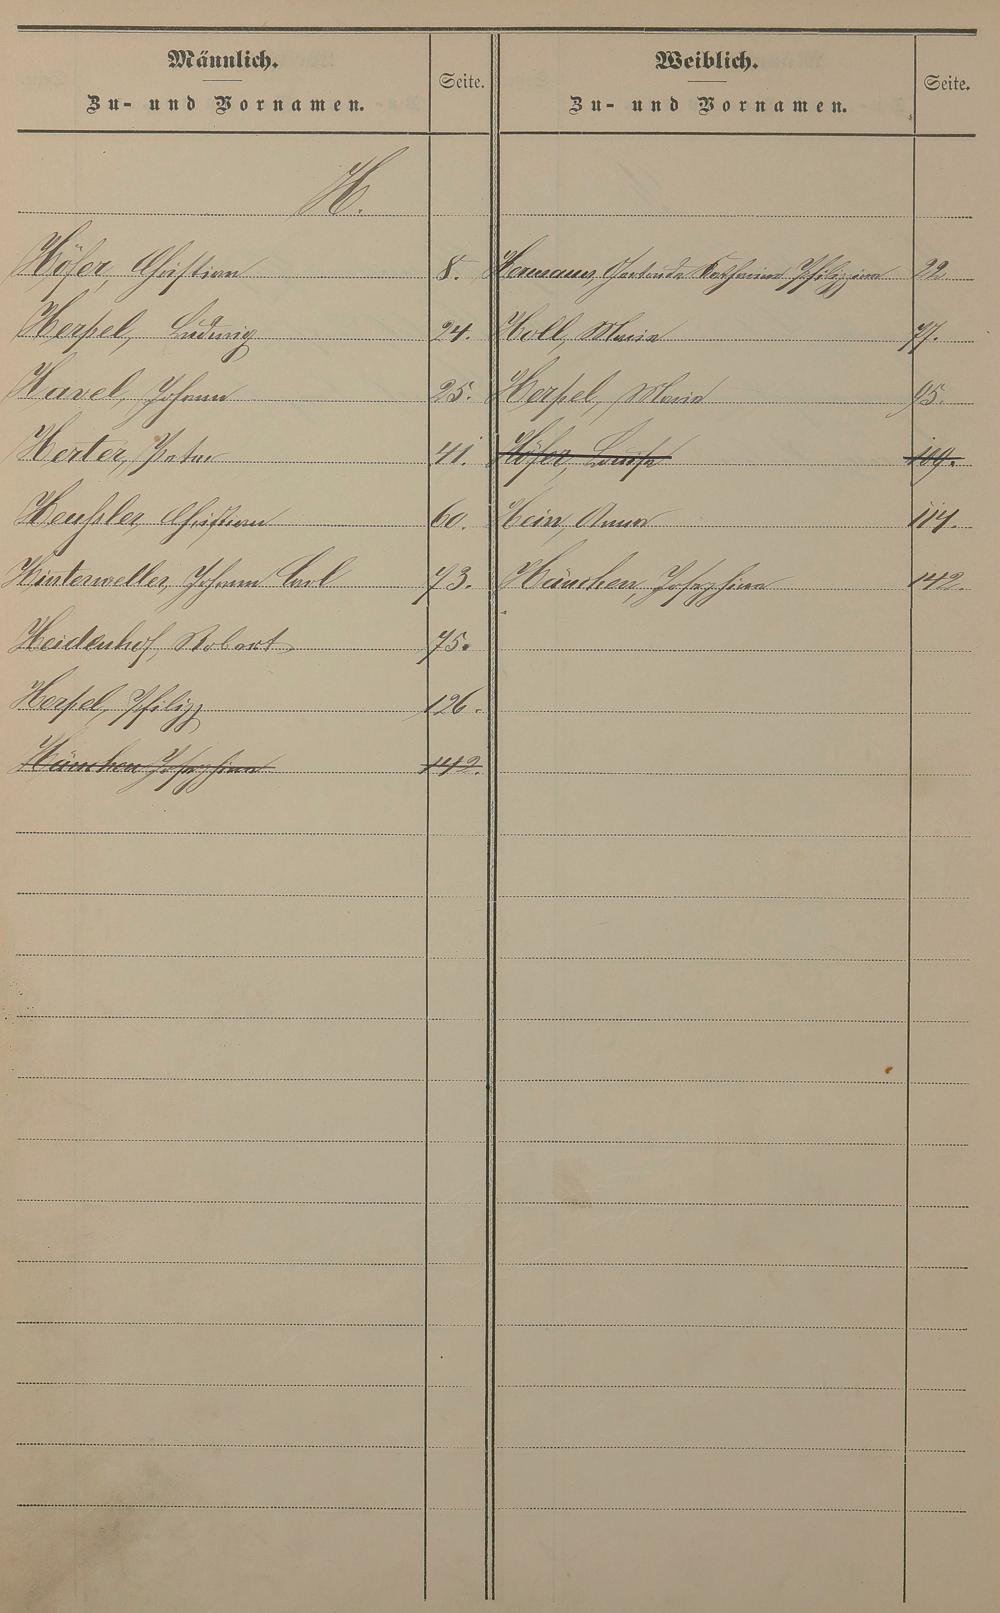 Männlich.
Zu- und Vornamen.
Seite.
H.
Höfer, Christian 8.
Herpel, Ludwig 24.
Havel, Johann 25.
Herter, Peter 41.
Heußler, Christian 60.
Hinterweller, Johann Carl 73.
Heidenhof, Robert 75.
Herpel, Philipp 126.
Hänchen Josephine 142.
Weiblich.
Zu- und Vornamen.
Seite.
Hermann, Gertrude Katharina Philippine 22
Holl, Maria 77.
Herpel, Maria 95.
Höfer, Louise 109.
Hein, Anna 114.
Hänchen, Josephine 142.